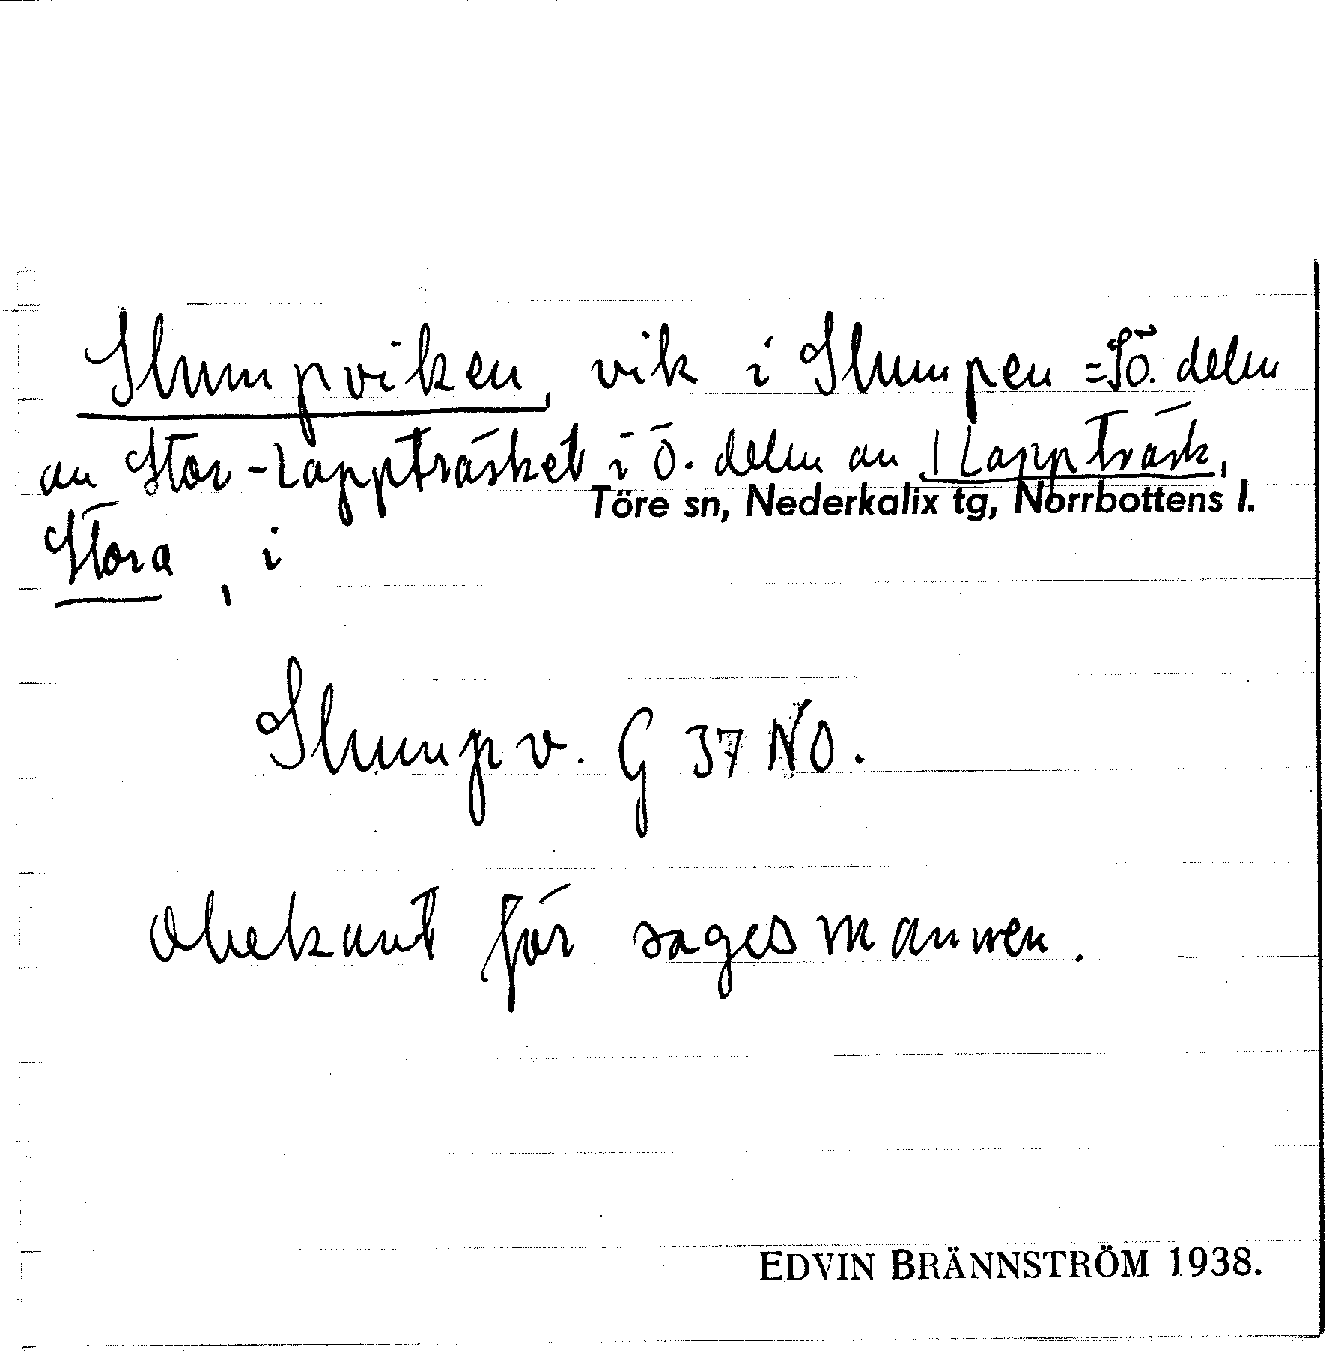 Slumpviken, vik i Slumpen = SÖ. delen
av Stor-Lappträsket i Ö. delen av 1 Lappträsk,
Töre sn, Nederkalix tg, Norrbottens l.
Stora, i
Slumpv. G 37 NO.
Obekant för sagesmannen.
EDVIN BRÄNNSTRÖM 1938.